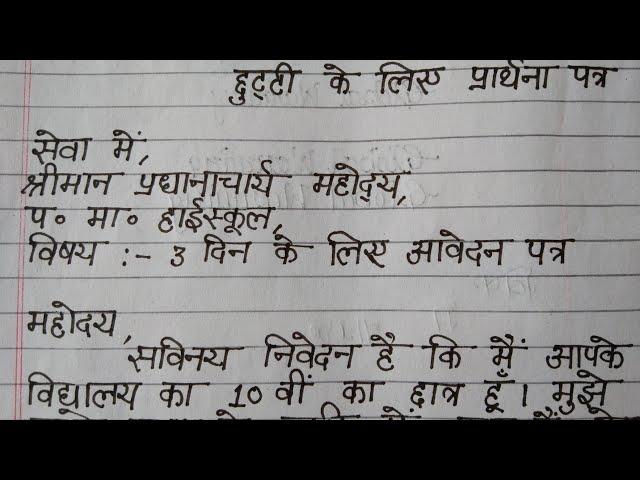 छुट्टी के लिए प्रार्थना पत्र
सेवा में,
श्रीमान प्रधानाचार्य महोद्य,
प॰ मा॰ हाईस्कूल,
विषय :- 3 दिन के लिए आवेदन पत्र
महोदय,
सविनय निवेदन है कि मैं आपके
विद्यालय का 10 वीं का छात्र हूँ। मुझे